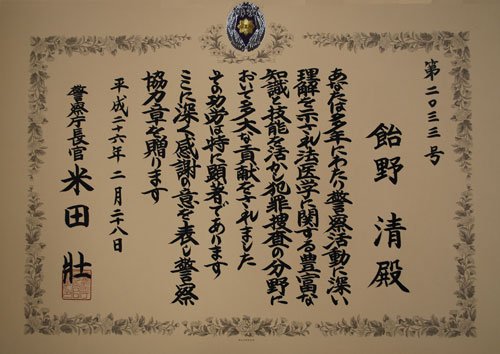 第二〇三三号
飴野清殿
あなたは多年にわたり警察活動に深い
理解を示され法医学に関する豊富な
知識と技能を活かし犯罪捜査の分野に
おいて多大な貢献をされました
その功労は特に顕著であります
ここに深く感謝の意を表し警察
協力章を贈ります
平成二十六年二月二八日
警察庁長官米田壯